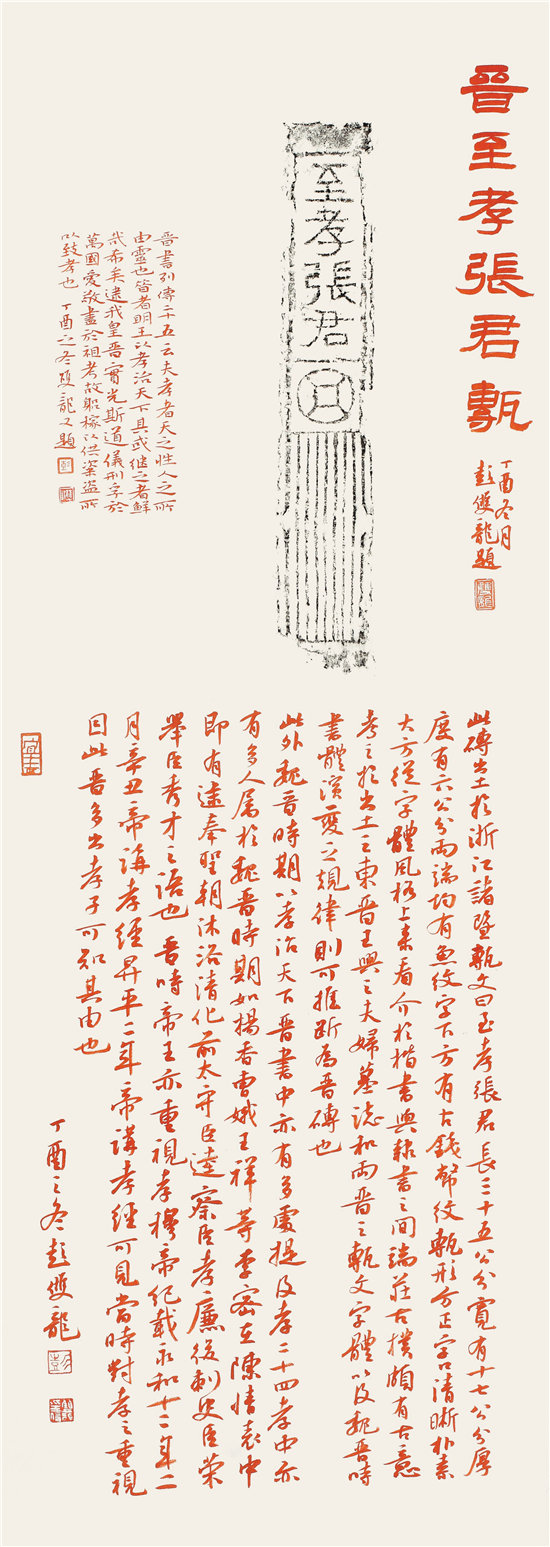 晉至孝張君甎
丁酉冬月
彭雙龍題
至孝張君
晉書列傳二十五云夫孝者天之性人之所
由靈也昔者明王以孝治天下其或継之者鮮
哉希矣逮我皇晉實光斯道儀刑孚於
萬國愛敬盡於祖考故躬稼以供粢盛所
以致孝也 丁酉之冬雙龍又題
此磚出土於浙江諸暨甎文曰至孝張君長三十五公分寬有十七公分厚
度有六公分兩端均有魚紋字下方有古錢幣紋甎形方正字口清晰朴素
大方從字體風格上来看介於楷書與隸書之間端莊古樸頗有古意
考之於出土之東晉王興之夫婦墓誌和兩晉之甎文字體以及魏晉時
書體演變之規律則可推斷為晉磚也
此外魏晉時期以孝治天下晉書中亦有多處提及孝二十四孝中亦
有多人屬於魏晉時期如楊香曹娥王祥等李密在陳情表中
即有逮奉聖朝沐浴清化前太守臣逵察臣孝廉後刺史臣榮
舉臣秀才之語也晉時帝王亦重視孝穆帝紀載永和十二年二
月辛丑帝講孝經昇平二年帝講孝經可見當時對孝之重視
因此晉多出孝子可知其由也
丁酉之冬彭雙龍